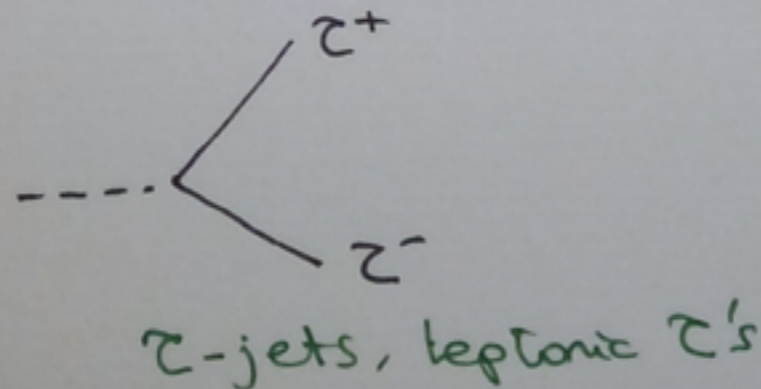 τ+
τ-
τ-jets, leptonic τ's